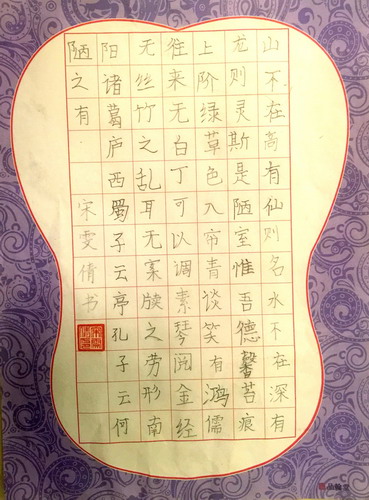 山不在高有仙则名水不在深有
龙则灵斯是陋室惟吾德馨苔痕
上阶绿草色入帘青谈笑有鸿儒
往来无白丁可以调素琴阅金经
无丝竹之乱耳无案牍之劳形南
阳诸葛庐西蜀子云亭孔子云何
陋之有
宋雯倩书
品翰堂